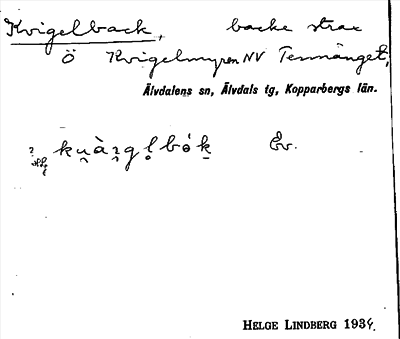 Kvigelback, backe strax
Ö Kvigelmyren NV Tennänget,
Älvdalens sn, Älvdals tg, Kopparbergs län.
Ev.
HELGE LINDBERG 1934.